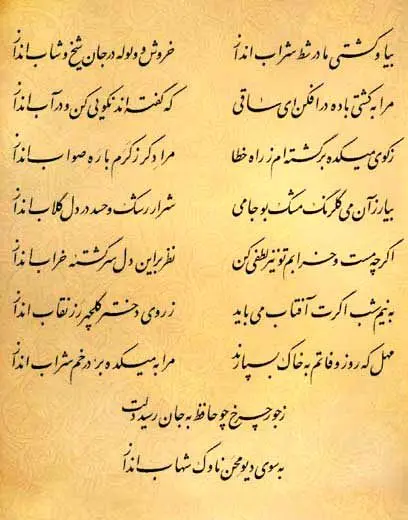 بیا و کشتی ما در شط شراب انداز خروش و ولوله در جان شیخ و شاب انداز
مرا به کشتی باده در افکن ای ساقی که گفته‌اند نکویی کن و در آب انداز
ز کوی میکده برگشته‌ام ز راه خطا مرا دگر ز کرم با ره صواب انداز
بیار زان می گلرنگ مشک بو جامی شرار رشک و حسد در دل گلاب انداز
اگرچه مست و خرابم تو نیز لطفی کن نظر بر این دل سرگشته خراب انداز
به نیم شب اگرت آفتاب می‌باید ز روی دختر گلچهر رز نقاب انداز
مهل که روز وفاتم به خاک بسپارند مرا به میکده بر در خم شراب انداز
ز جور چرخ چو حافظ به جان رسید دلت
به سوی دیو محن ناوک شهاب انداز